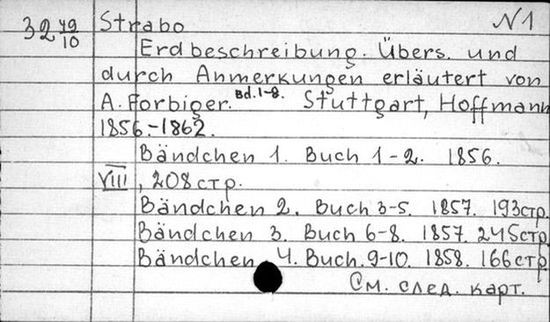 Strabo N1
32 49/10
Erdbeschreibung. Übers. und
durch Anmerkungen erläutert von
A. Forbiger. Bd. 1-8. Stuttgart, Hoffmann
1856.-1862.
Bändchen 1. Buch 1-2. 1856.
VIII, 208 стр.
Bändchen 2. Buch 3-5. 1857. 193 стр.
Bändchen 3. Buch 6-8. 1857. 245 стр.
Bändchen 4. Buch. 9-10. 1858. 166 стр
См. след. карт.